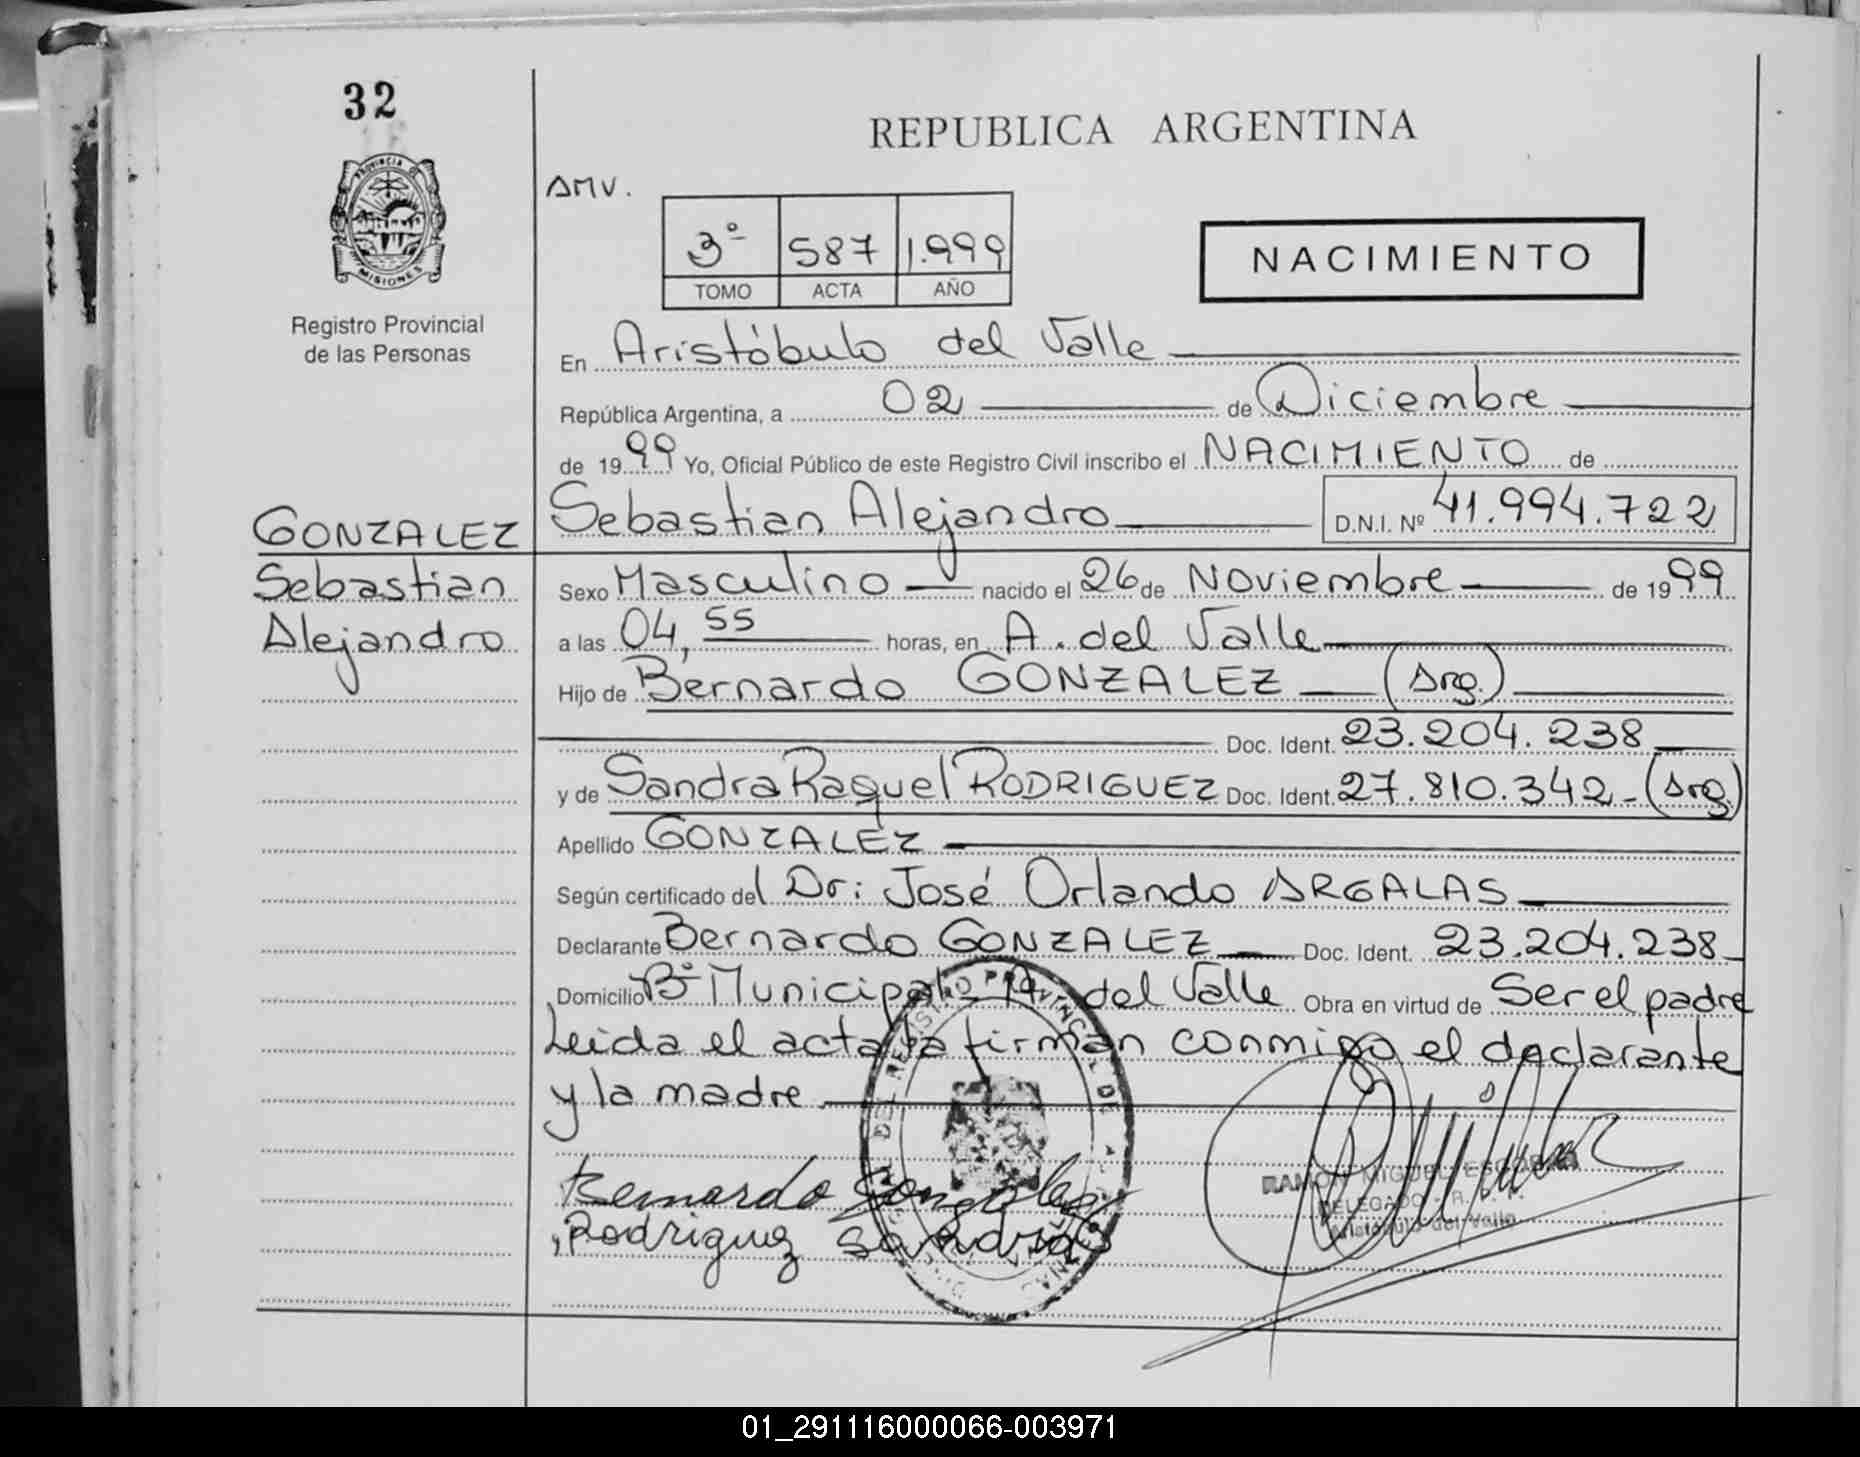 32
REPUBLICA ARGENTINA
PROVINCIA DE
MISIONES
Registro Provincial
de las Personas
AMV.
3º 587 1.999
TOMO ACTA AÑO
NACIMIENTO
En Aristóbulo del Valle
República Argentina, a 02 de Diciembre
de 1999 Yo, Oficial Público de este Registro Civil inscribo el NACIMIENTO de
Sebastian Alejandro D.N.I. Nº 41.994.722
GONZALEZ
Sebastian
Alejandro
Sexo Masculino nacido el 26 de Noviembre de 1999
a las 04,55 horas, en A. del Valle
Hijo de Bernardo GONZALEZ (Arg.)
Doc. Ident. 23.204.238
y de Sandra Raquel RODRIGUEZ Doc. Ident. 27.810.342 - (Arg.)
Apellido GONZALEZ
Según certificado del Dr: José Orlando ARGALAS
Declarante Bernardo GONZALEZ Doc. Ident. 23.204.238
Domicilio Bº Municipal - A. del Valle Obra en virtud de Ser el padre
Leida el acta la firman conmigo el declarante
y la madre
Bernardo Gonzalez
Rodriguez Sandra
REGISTRO PROVINCIAL DE
RAMON MIGUEL ESCOBAR
DELEGADO - R. P. P.
Aristobulo del Valle
01_291116000066-003971